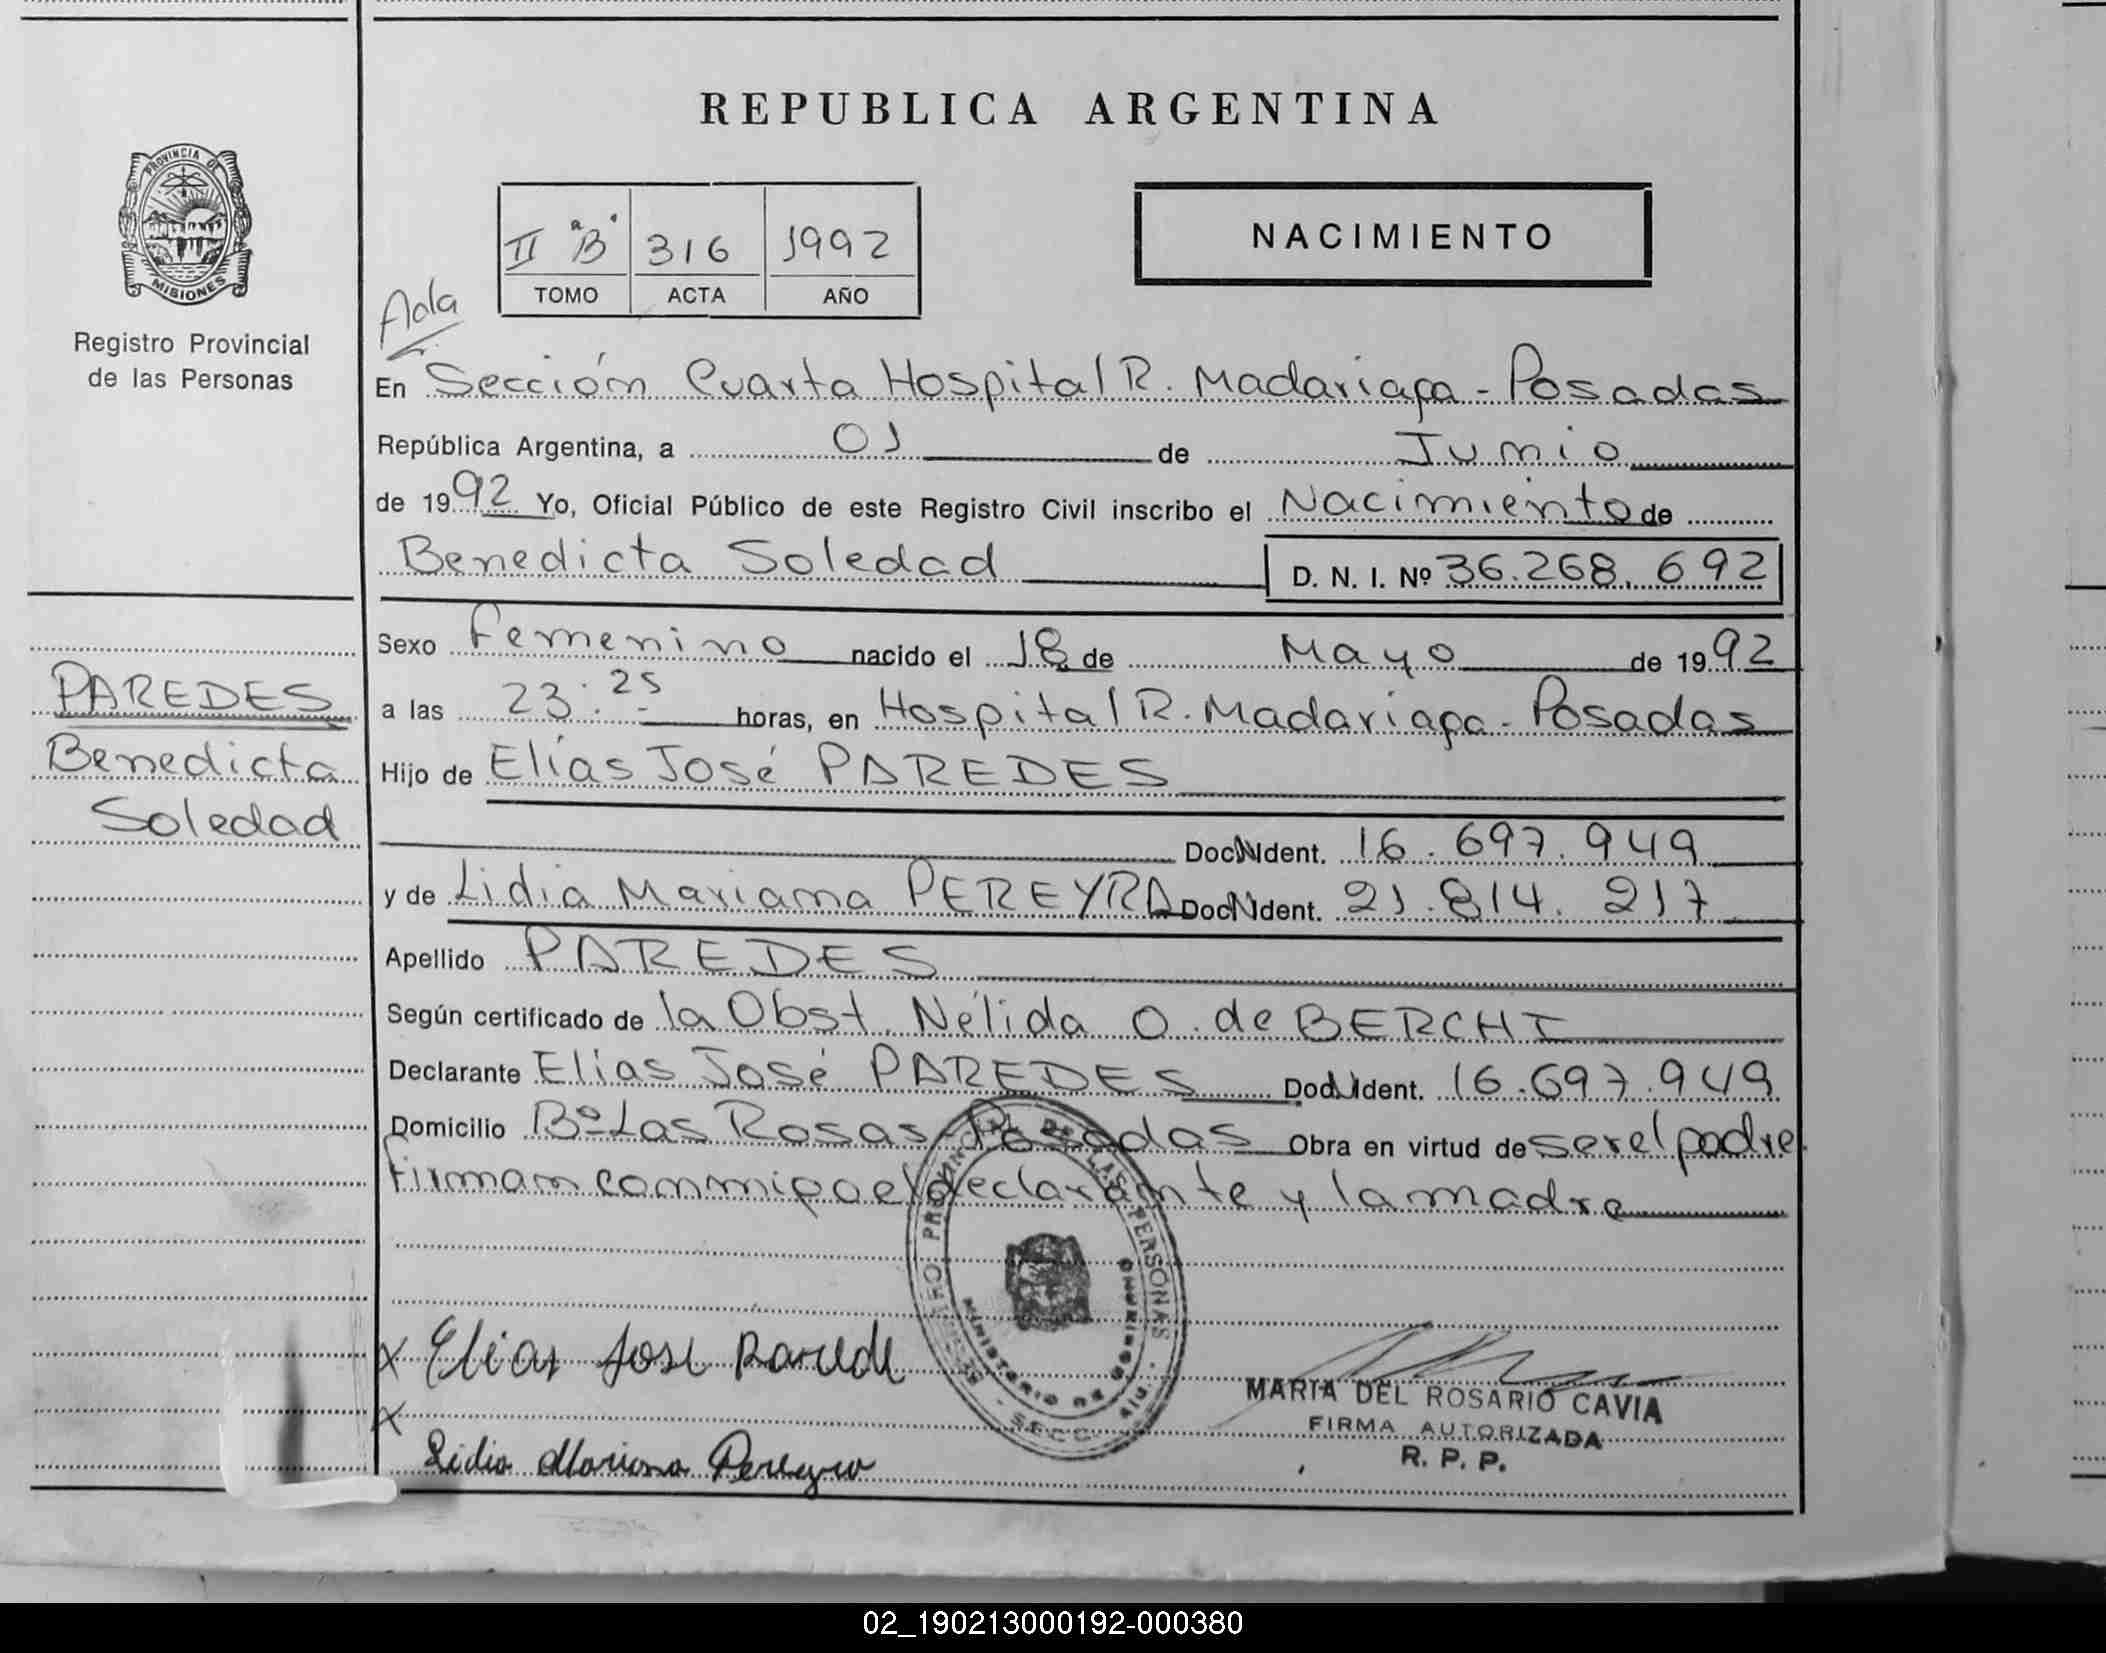 REPUBLICA ARGENTINA
PROVINCIA DE
MISIONES
Registro Provincial
de las Personas
II "B" 316 1992
TOMO ACTA AÑO
NACIMIENTO
Ada
En Sección Cuarta Hospital R. Madariaga - Posadas
República Argentina, a 01 de Junio
de 1992 Yo, Oficial Público de este Registro Civil inscribo el Nacimiento de
Benedicta Soledad D. N. I. Nº 36.268.692
Sexo Femenino nacido el 18 de Mayo de 1992
a las 23:25 horas, en Hospital R. Madariaga - Posadas
Hijo de Elías José PAREDES
Doc. Ident. 16.697.949
y de Lidia Mariana PEREYRA Doc. Ident. 21.814.217
Apellido PAREDES
Según certificado de la Obst. Nélida O. de BERCHI
Declarante Elías José PAREDES Doc. Ident. 16.697.949
Domicilio Bº Las Rosas - Posadas Obra en virtud de ser el padre.
firman conmigo el declarante y la madre
PAREDES
Benedicta
Soledad
PROVINCIAL DE LAS PERSONAS
MINISTERIO DE GOBIERNO
SECC.
Elias Jose Parede
Lidia Mariana Pereyra
MARIA DEL ROSARIO CAVIA
FIRMA AUTORIZADA
R. P. P.
02_190213000192-000380